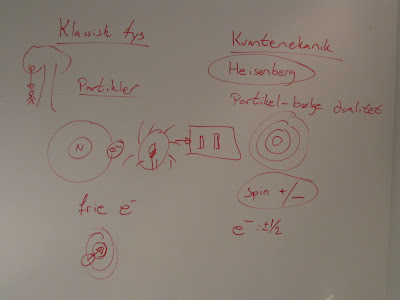 Klassisk fys
Partikler
N
e⁻
frie e⁻
Kvantemekanik
Heisenberg
Partikel-bølge dualitet
Spin +/−
e⁻: ±1/2